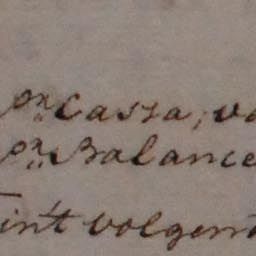 pr Cassa, vo
pr Balance
in't volgend